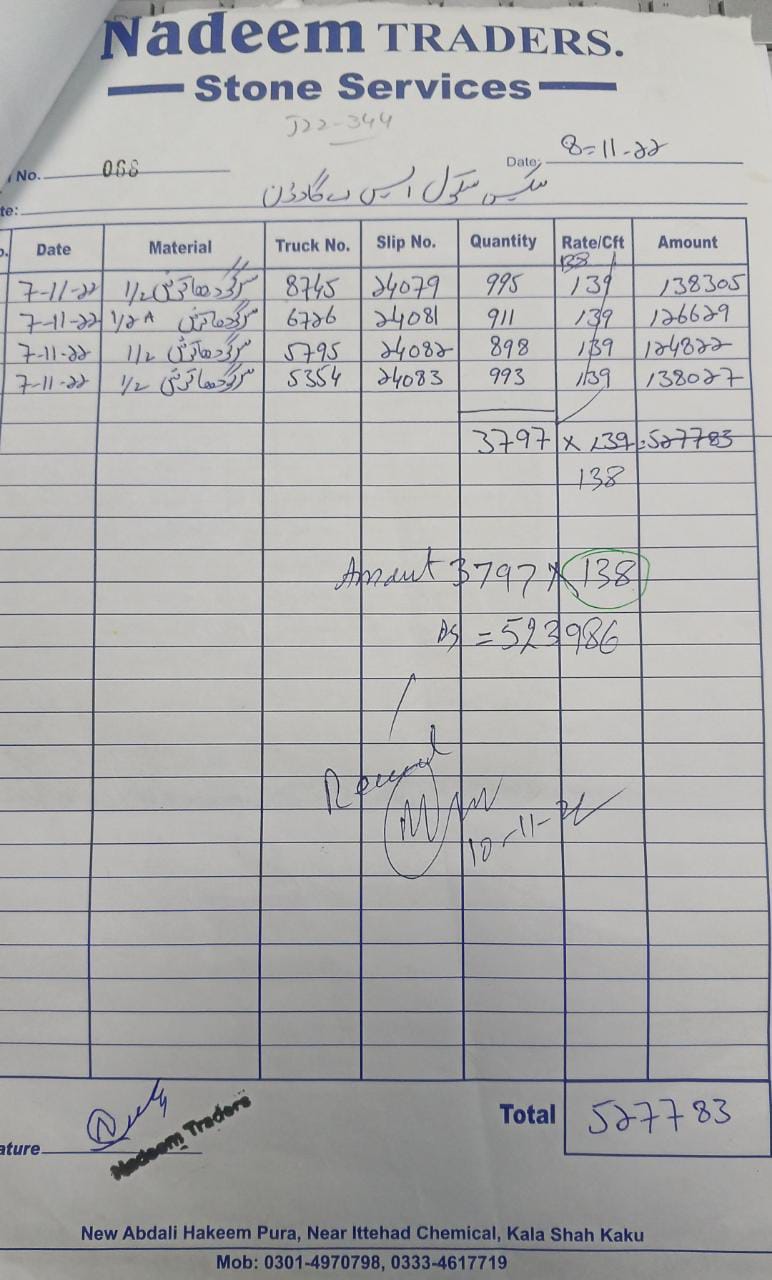 Nadeem TRADERS.
Stone Services
J22-344
No. 068 Date: 8-11-22
te:
Date Material Truck No. Slip No. Quantity Rate/Cft Amount
138
7-11-22 1/2 سرگودھا کرش 8745 24079 995 139 138305
7-11-22 1/2 A سرگودھا کرش 6726 24081 911 139 126629
7-11-22 1/2 سرگودھا کرش 5795 24082 898 139 124822
7-11-22 1/2 سرگودھا کرش 5354 24083 993 139 138027
3797 x 139 = 527783
138
Amount 3797 x 138
= 523986
Received
10-11-22
Total 527783
ature
Nadeem Traders
New Abdali Hakeem Pura, Near Ittehad Chemical, Kala Shah Kaku
Mob: 0301-4970798, 0333-4617719